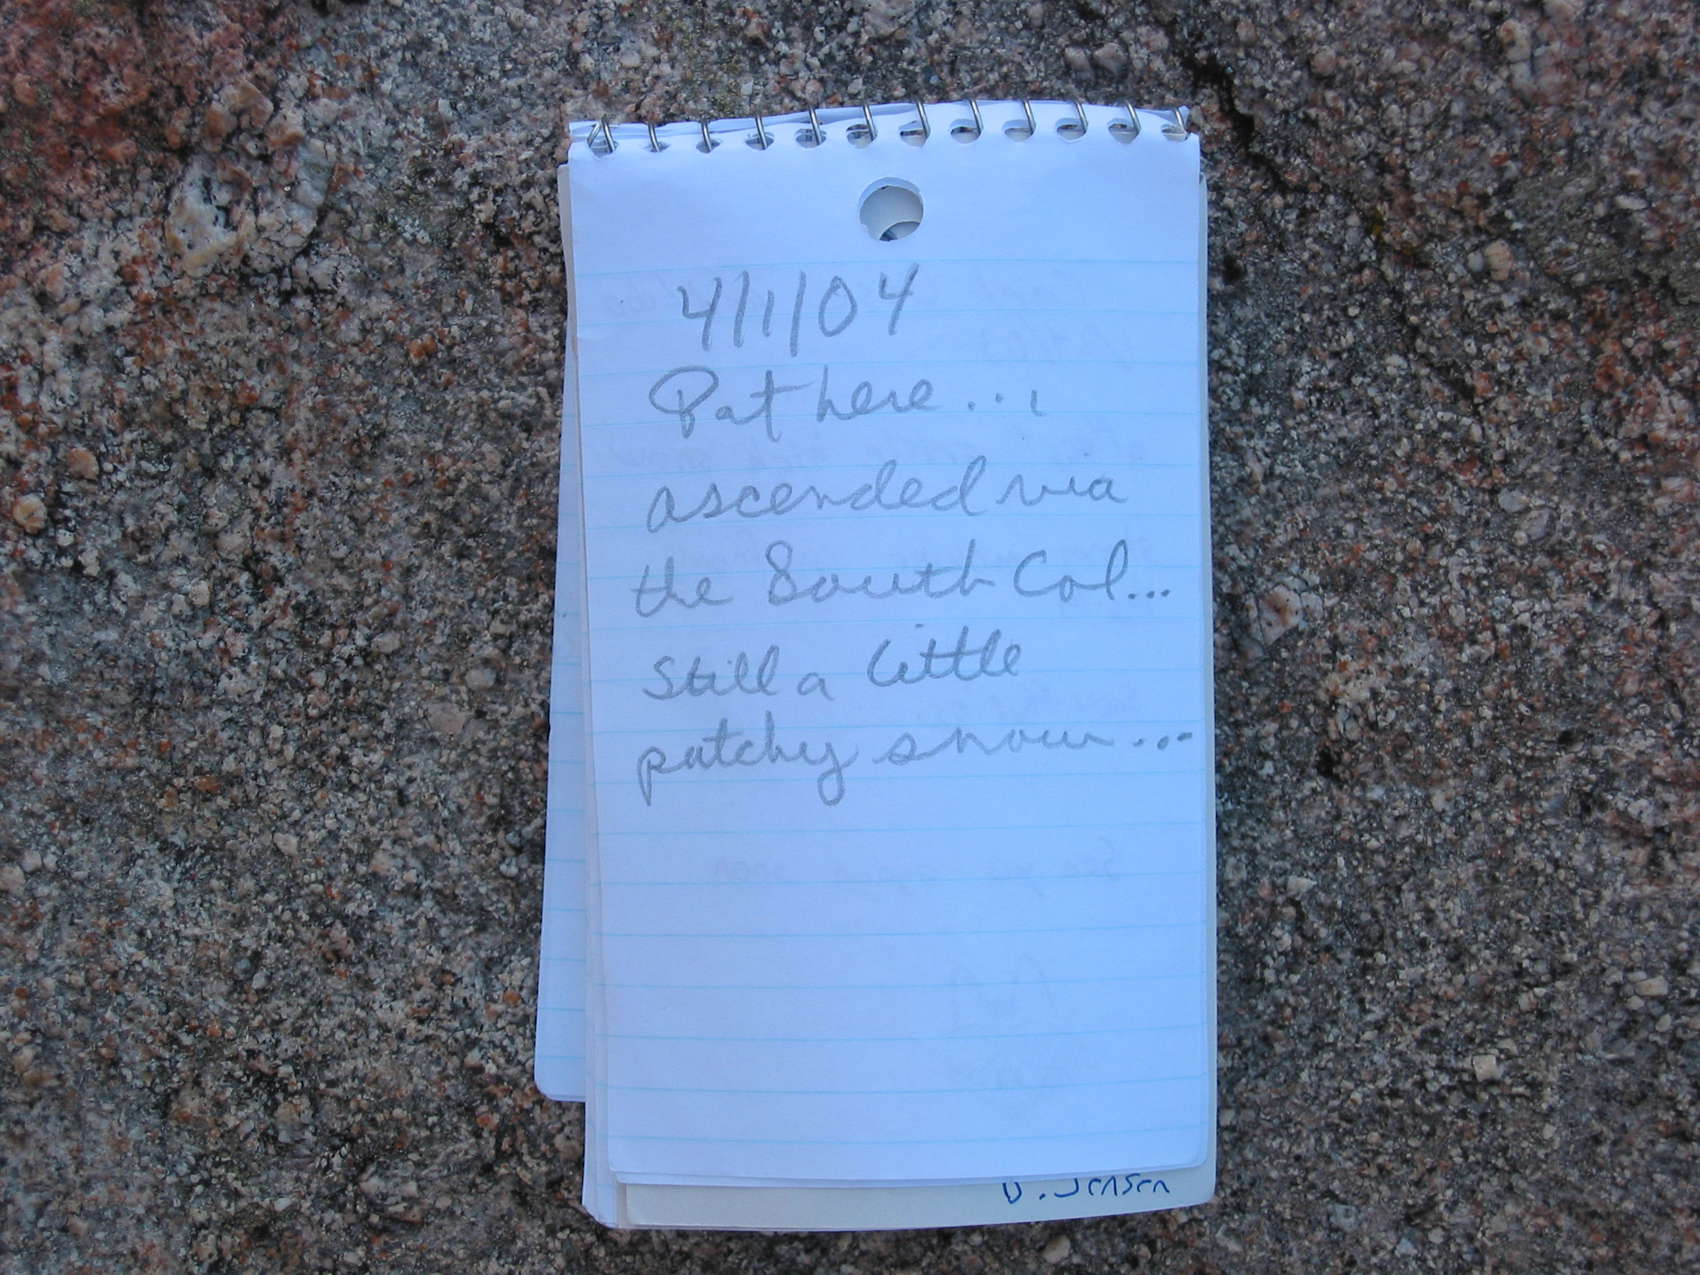 4/1/04
Pat here...
ascended via
the South Col...
Still a little
patchy snow...
D. Jensen